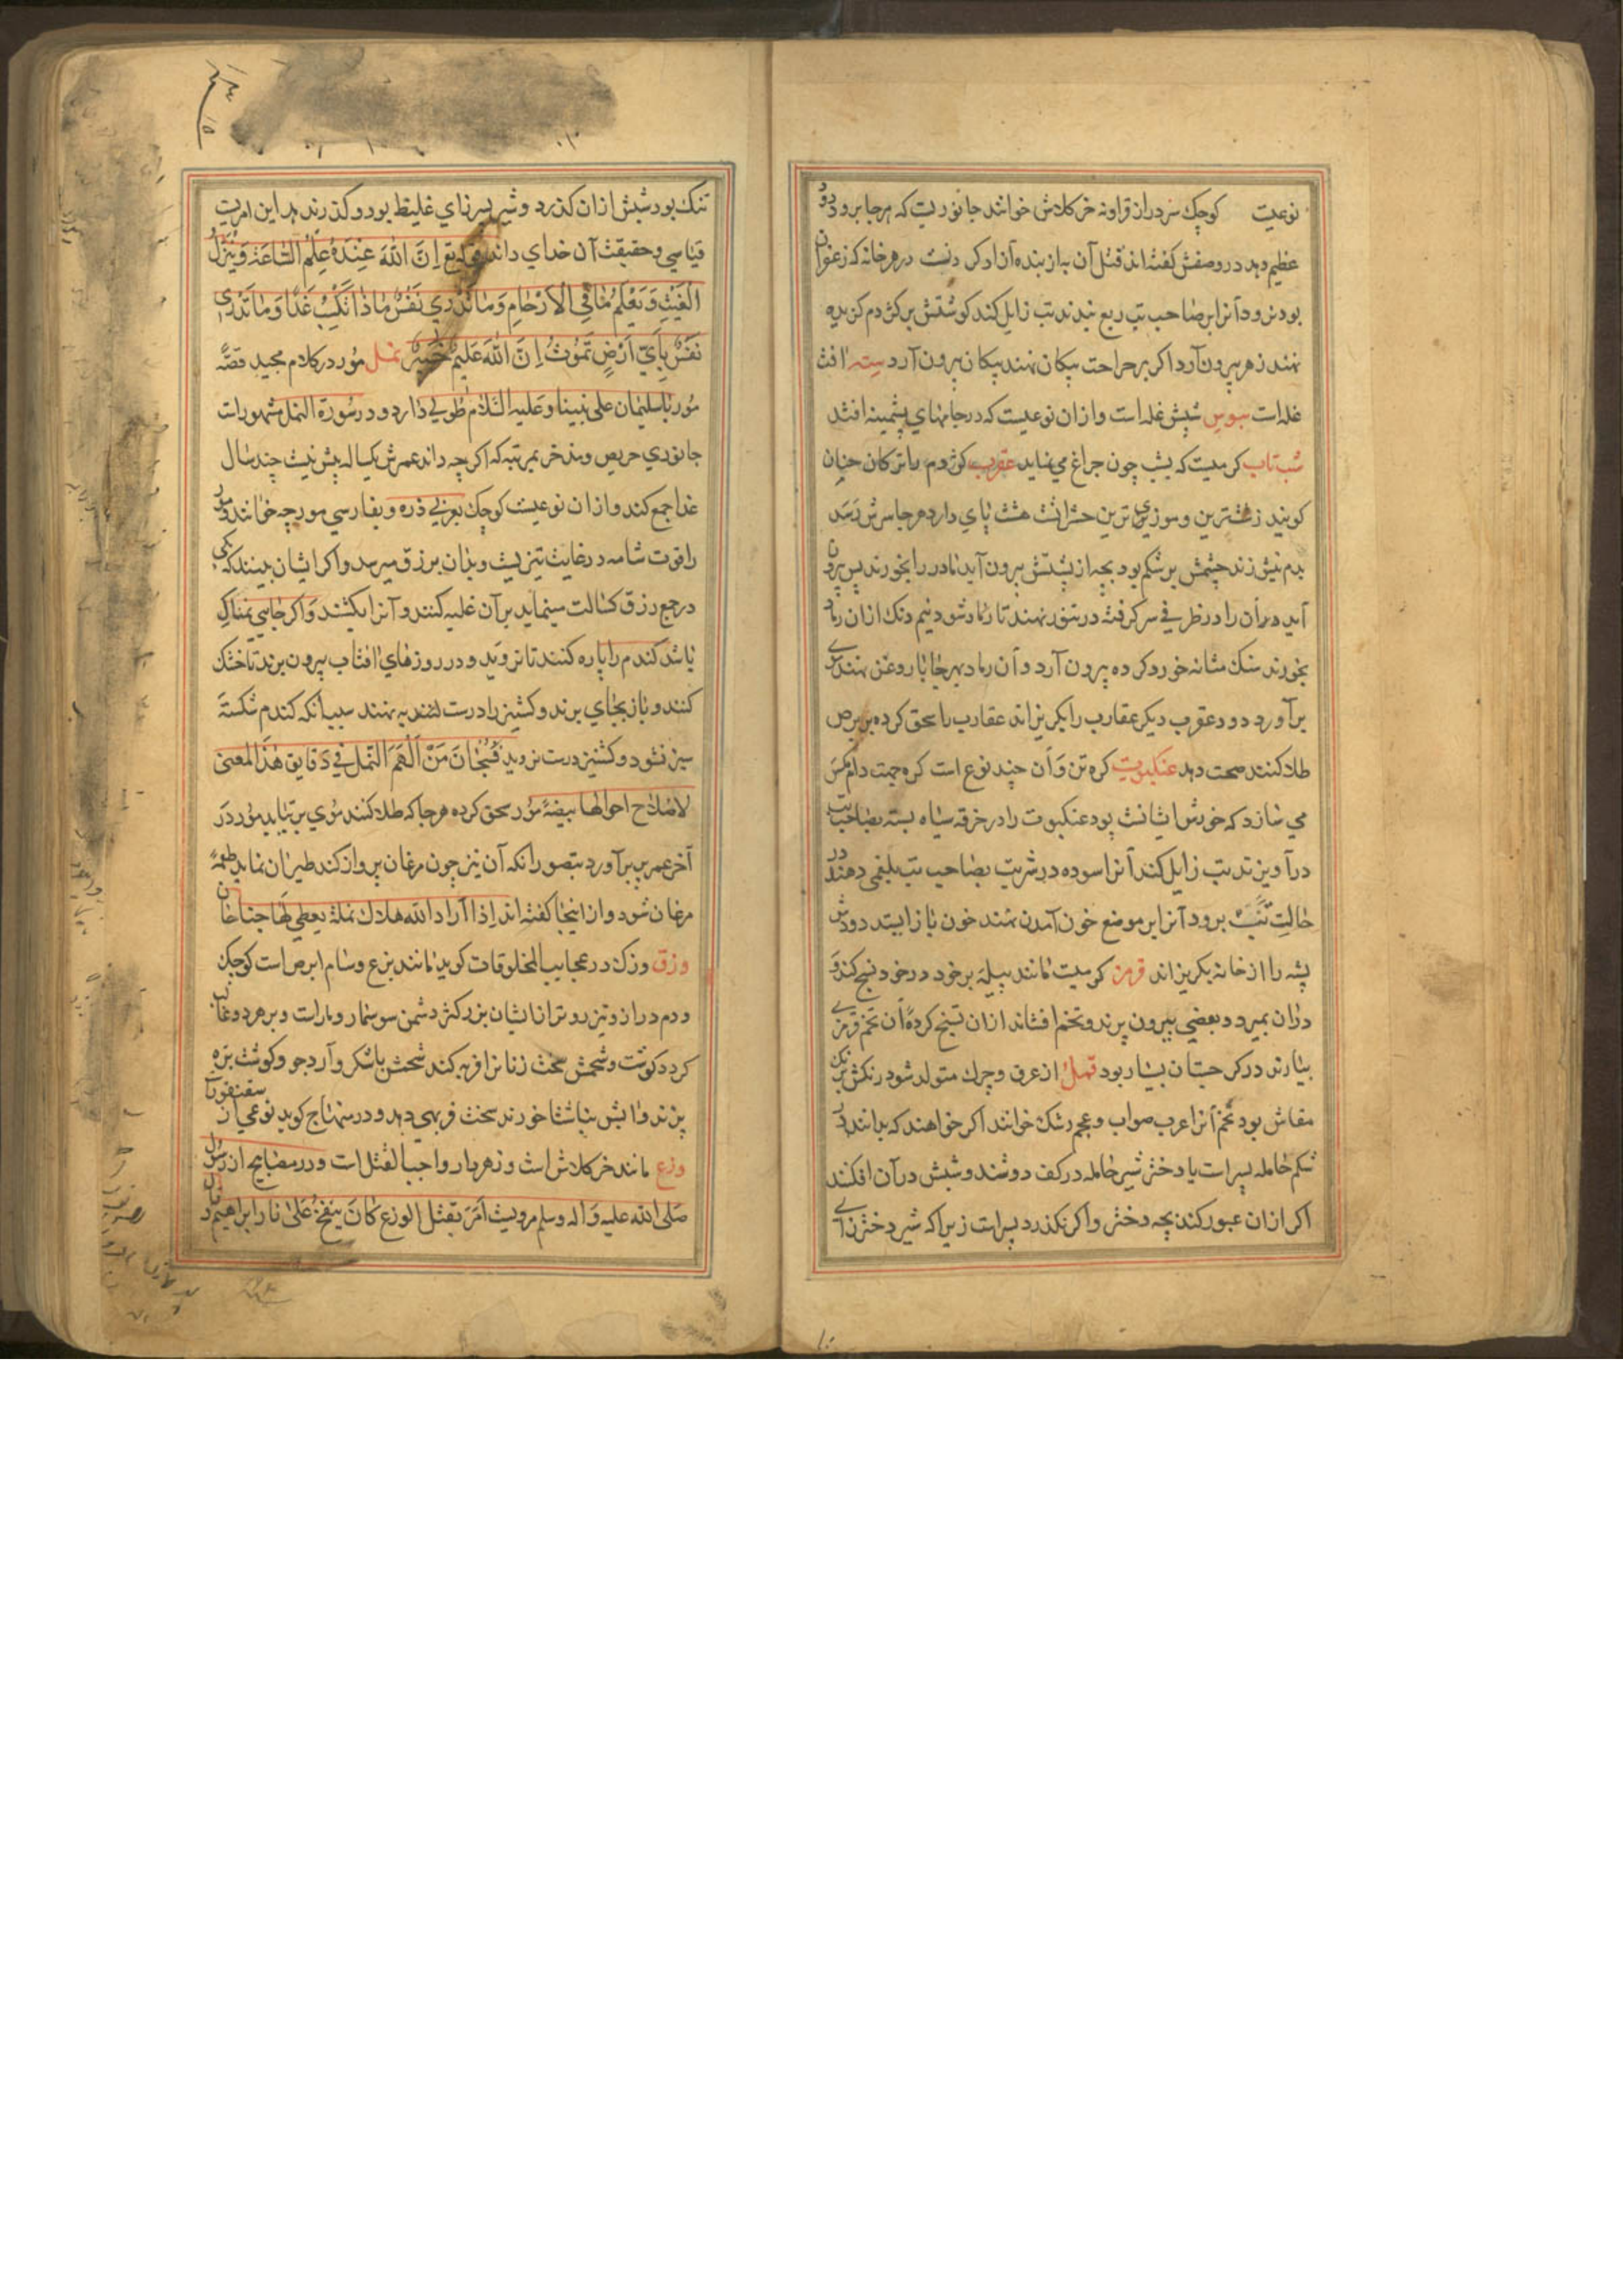 نوعیت کوچک سر دراز قراونه خر کلاش خوانند جانوریست که هر جا برود درد
عظیم دهد در وصفش گفته‌اند قتل آن به از بنده آزاد کردنست در هر خانه که زعفران
بود نرود آنرا بر صاحب تب ربع بندند تب زایل کند گوشتش بر کژدم گزیده
نهند زهر بیرون آرد اگر بر جراحت پیکان نهند پیکان بیرون آرد سته آفت
غله است سوس شپش غله است و از آن نوعیست که در جامهای پشمینه افتد
شب تاب کرمیست که بشب چون چراغ می نماید عقرب کژدم باترکان جیان
کویند زشترین و موذی ترین حشراتست هشت پای دارد هر جا سرش رسد
بدم نیش زند چشمش بر شکم بود بچه از پشتش بیرون آید مادر را بخورند پس بیرون
آید در آن را در ظرفی سر گرفته در تنور نهند تا رماد شود نیم دنک از آن رماد
بخورند سنک مثانه خورد کرده بیرون آرد و آن رماد بهر جا با روغن نهند موی
برآورد دود عقرب دیگر عقارب را بگریزاند عقارب را سحق کرده بر برص
طلا کنند صحت دهد عنکبوت کره تن و آن چند نوع است کره جهت دام مکس
می سازد که خورش ایشانست بود عنکبوت را در خرقه سیاه بسته بصاحب تب
درآویزند تب زایل کند آنرا سوده در شربت بصاحب تب بلغمی دهند در
حالت تب برود آنرا بر موضع خون آمدن نهند خون باز ایستد دودش
پشه را از خانه بگریزاند قرمز کرمیست مانند پیله بر خود در خود نسج کند و
در آن بمیرد و بعضی بیرون پرند و تخم افشاند از آن نسج کرده آن تخم قرمزی
بیارند در کرجستان بسیار بود قمل از عرق و چرک متولد شود رنگش برنک
مقاش بود تخم آنرا عرب صواب و عجم رشک خوانند اگر خواهند که بدانند در
شکم حامله پسر است یا دختر شیر حامله در کف دوشند و شپش در آن افکنند
اگر از آن عبور کند بچه دختر و اگر نگذرد پسر است زیرا که شیر دختر زای
تنک بود شپش از آن گذرد و شیر پسر زای غلیظ بود و گذر ندهد این امریست
قیاسی و حقیقت آن خدای داند إِنَّ اللّٰهَ عِنْدَهُ عِلْمُ السَّاعَةِ وَيُنَزِّلُ
الْغَيْثَ وَيَعْلَمُ مَا فِي الْأَرْحَامِ وَمَا تَدْرِي نَفْسٌ مَاذَا تَكْسِبُ غَدًا وَمَا تَدْرِي
نَفْسٌ بِأَيِّ أَرْضٍ تَمُوتُ إِنَّ اللّٰهَ عَلِيمٌ خَبِيرٌ نمل مور در کلام مجید قصّهٔ
مور با سلیمان علی نبینا و علیه السلام طولی دارد و در سورة النمل مشهور است
جانوری حریص و مدخر بمرتبه که اگر چه داند عمرش یکساله بیش نیست چند سال
غذا جمع کند و از آن نوعیست کوچک بعربی ذره و بفارسی مورچه خوانند مور
را قوت شامه در غایت تیزیست و بدان برزق میرسد و اگر ایشان بینند که یکی
در جمع رزق کسالت مینماید بر آن غلبه کنند و آنرا بکشند و اگر جایی نمناک
باشد کندم را پاره کنند تا نروید و در روزهای آفتاب بیرون برند تا خشک
کنند و باز بجای برند و کشنیز را درست بنهند سبب آنکه کندم شکسته
سبز نشود و کشنیز درست نروید فسبحان من الهم النمل فی دقایق هذا المعنی
لاصلاح احوالها بیضهٔ مور سحق کرده هر جا که طلا کنند موی برنیاید مور در
آخر عمر پر برآورد بتصور آنکه آن نیز چون مرغان پرواز کند طیران نماید طعمهٔ
مرغان شود و از اینجا گفته‌اند اذا اراد الله هلاک نملة یعطی لها جناحان
وزق وزک در عجایب المخلوقات کوید مانند وزغ و سام ابرص است کوچک
و دم دراز و تیز روتر از ایشان بزرکتر دشمن سوسمار و مار است و بر هر دو غالب
گردد کوشت و شحمش سخت زنانرا فربه کند شحمش با شکر و آرد جو و گوشت بره
پزند و آبش بناشتا خورند سخت فربهی دهد و در منهاج کوید نوعی از سقنقور
وزغ مانند خر کلاش است و زهر دار واجب القتل است و در مصابیح از رسول
صلی الله علیه و آله و سلم مرویست امر بقتل الوزغ کان ینفخ علی نار ابراهیم